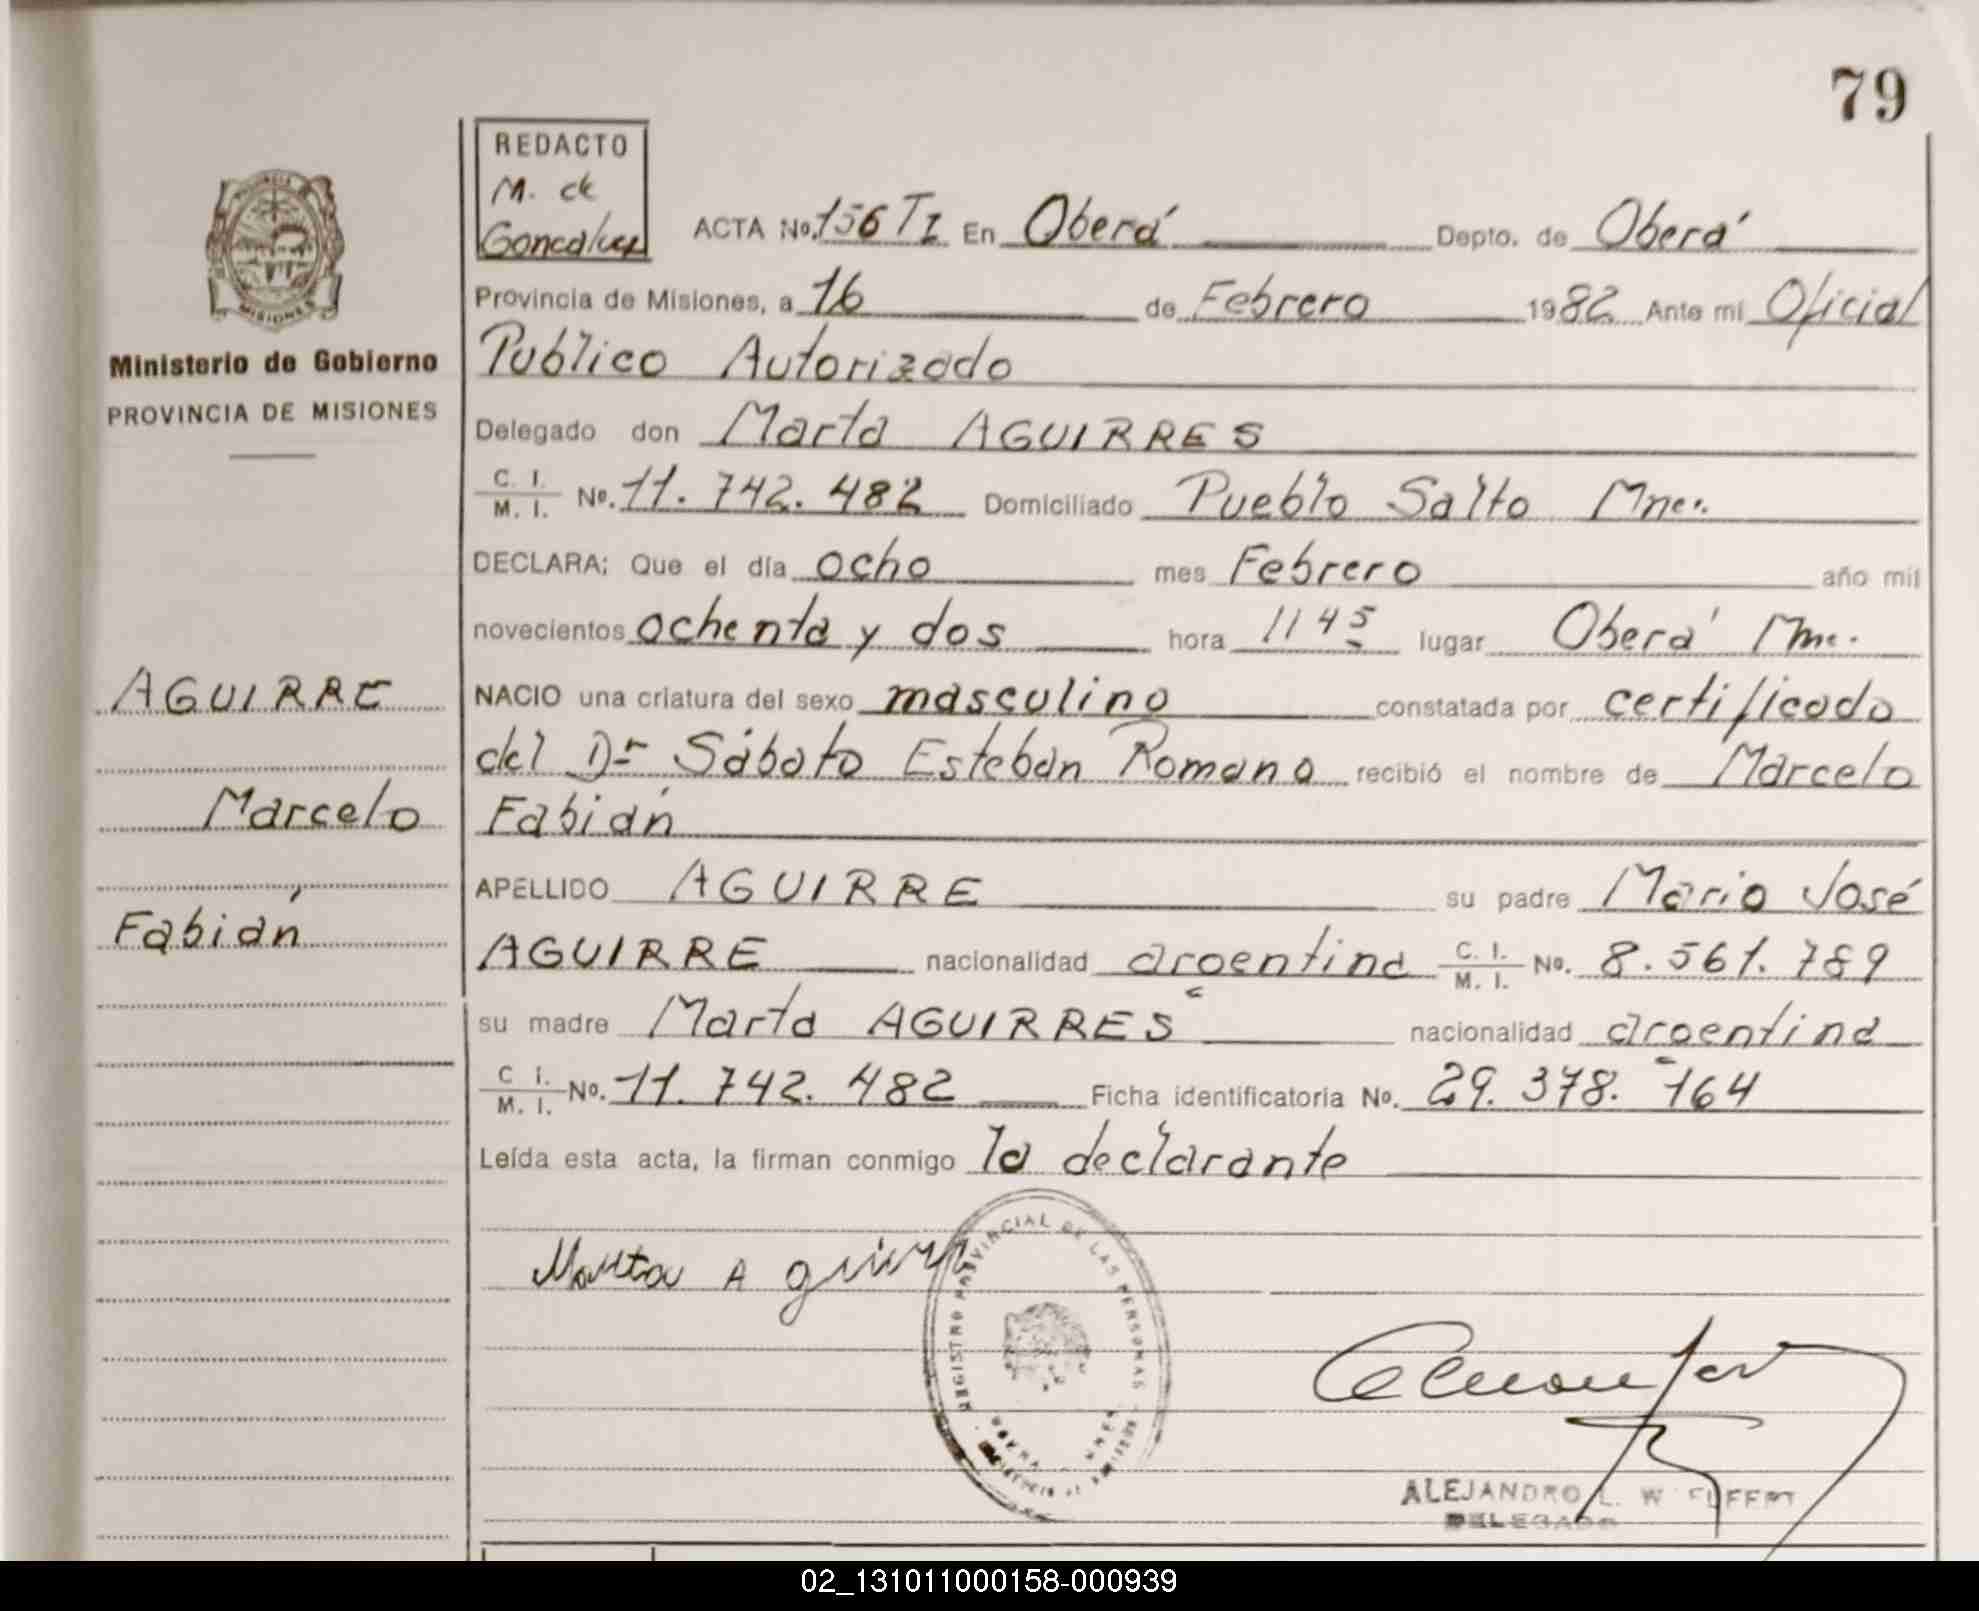 79
REDACTO
M. de
Goncalvez
ACTA No. 156 TI En Oberá Depto. de Oberá
Provincia de Misiones, a 16 de Febrero 1982 Ante mi Oficial
Publico Autorizado
Delegado don Marta AGUIRRES
C. I. M. I. No. 11.742.482 Domiciliado Pueblo Salto Mnes.
DECLARA; Que el día ocho mes Febrero año mil
novecientos ochenta y dos hora 1145 lugar Oberá Mnes.
NACIO una criatura del sexo masculino constatada por certificado
del Dr Sábato Esteban Romano recibió el nombre de Marcelo
Fabián
APELLIDO AGUIRRE su padre Mario José
AGUIRRE nacionalidad argentina C. I. M. I. No. 8.561.789
su madre Marta AGUIRRES nacionalidad argentina
C I. M. I. No. 11.742.482 Ficha identificatoria No. 29.378.164
Leída esta acta, la firman conmigo la declarante
Marta A
REGISTRO PROVINCIAL DE LAS PERSONAS
ALEJANDRO L. W
DELEGADO
MISIONES
Ministerio de Gobierno
PROVINCIA DE MISIONES
AGUIRRE
Marcelo
Fabián
02_131011000158-000939